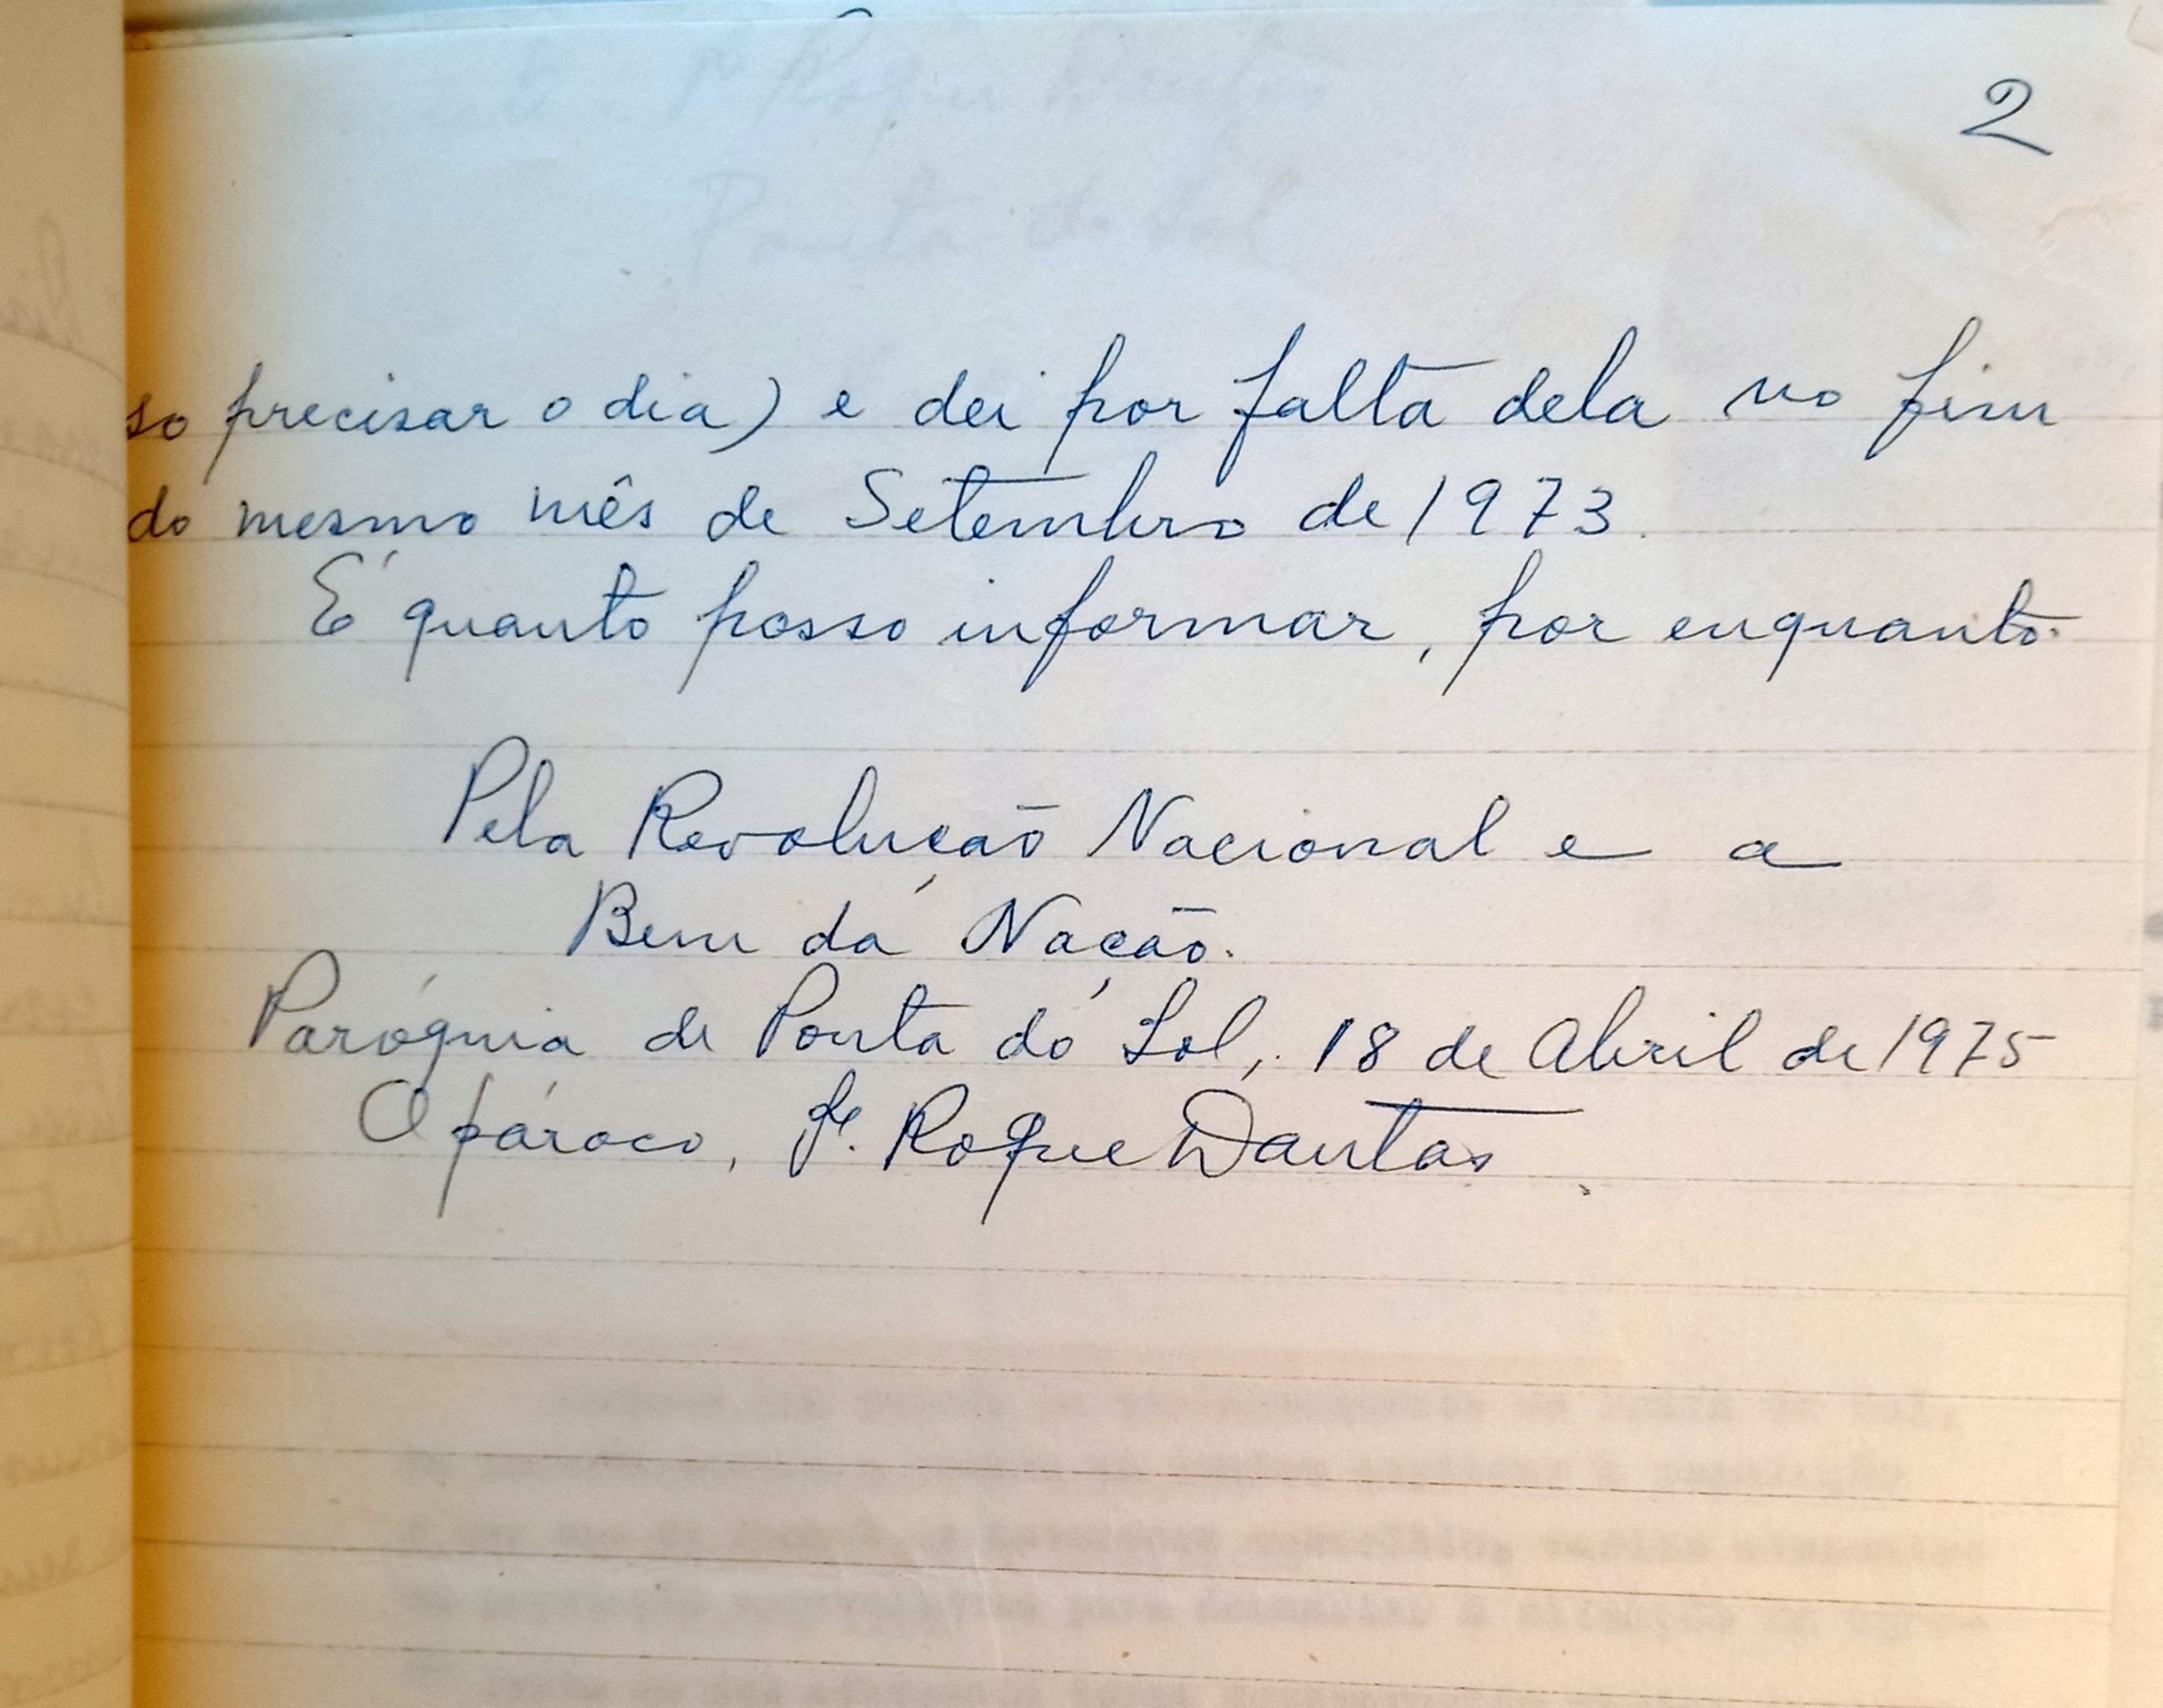 2
so precisar o dia) e dei por falta dela no fim
do mesmo mês de Setembro de 1973.
É quanto posso informar, por enquanto.
Pela Revolução Nacional e a
Bem da Nação.
Paróquia de Ponta do Sol, 18 de Abril de 1975
O pároco, Pe. Roque Dantas.